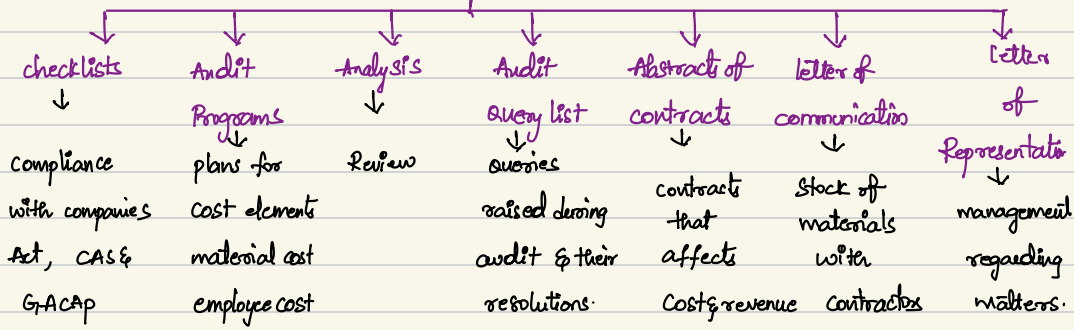 checklists
compliance
with companies
Act, CAS &
GACAP
Audit
Programs
plans for
cost elements
material cost
employee cost
Analysis
Review
Audit
Query list
Queries
raised during
audit & their
resolutions.
Abstracts of
contracts
contracts
that
affects
Cost & revenue
letter of
communication
Stock of
materials
with
contractors
letter
of
Representatio
management
regarding
matters.